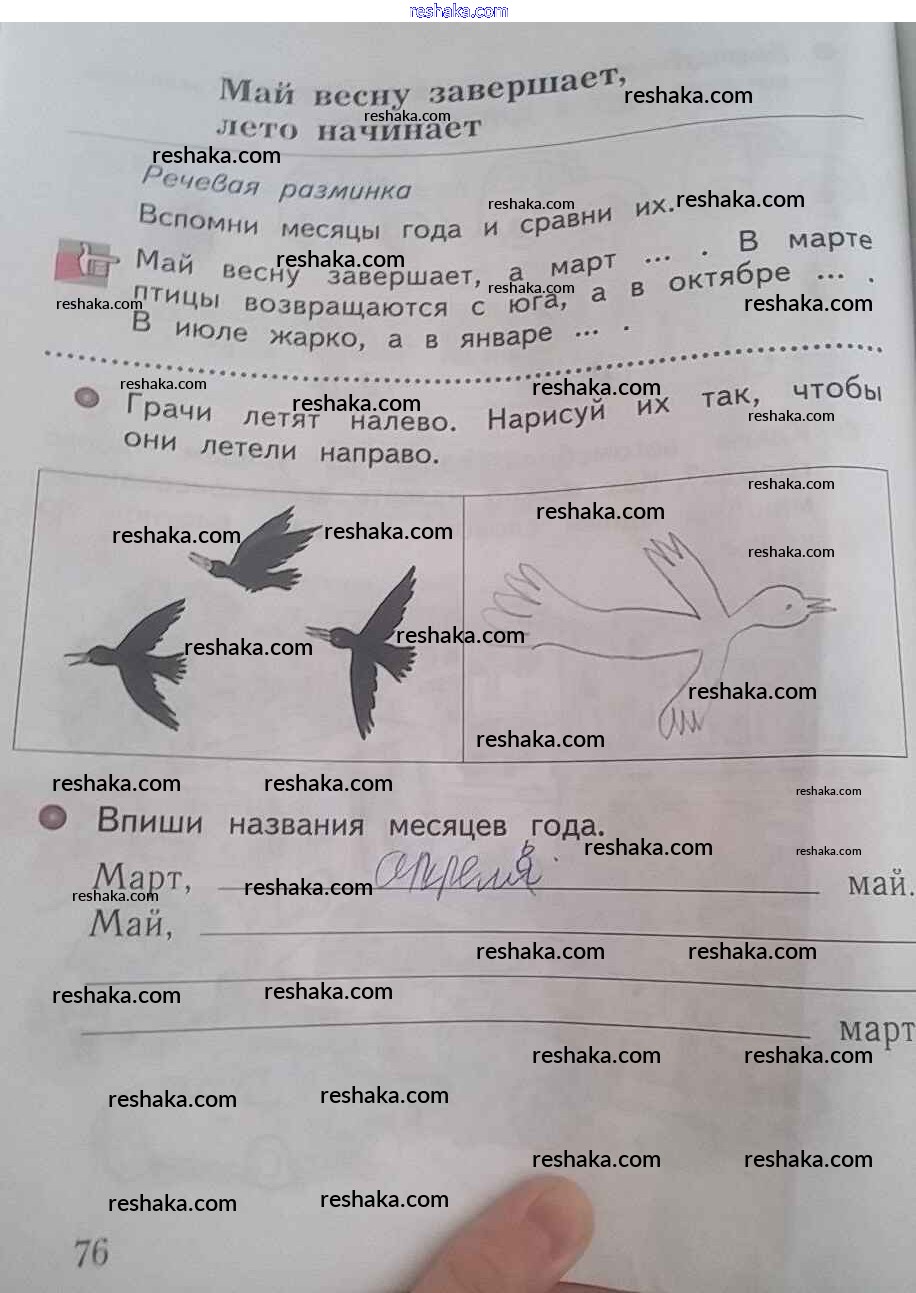 reshaka.com
Май весну завершает,
reshaka.com
reshaka.com
лето начинает
reshaka.com
Речевая разминка
reshaka.com
reshaka.com
Вспомни месяцы года и сравни их.
reshaka.com
Май весну завершает, а март ... . В марте
reshaka.com
reshaka.com
reshaka.com
птицы возвращаются с юга, а в октябре ... .
В июле жарко, а в январе ... .
reshaka.com
reshaka.com
reshaka.com
reshaka.com
Грачи летят налево. Нарисуй их так, чтобы
они летели направо.
reshaka.com
reshaka.com
reshaka.com
reshaka.com
reshaka.com
reshaka.com
reshaka.com
reshaka.com
reshaka.com
reshaka.com
reshaka.com
reshaka.com
Впиши названия месяцев года.
reshaka.com
reshaka.com
Март, апрель май.
reshaka.com
reshaka.com
Май,
reshaka.com
reshaka.com
reshaka.com
reshaka.com
март
reshaka.com
reshaka.com
reshaka.com
reshaka.com
reshaka.com
reshaka.com
reshaka.com
reshaka.com
76